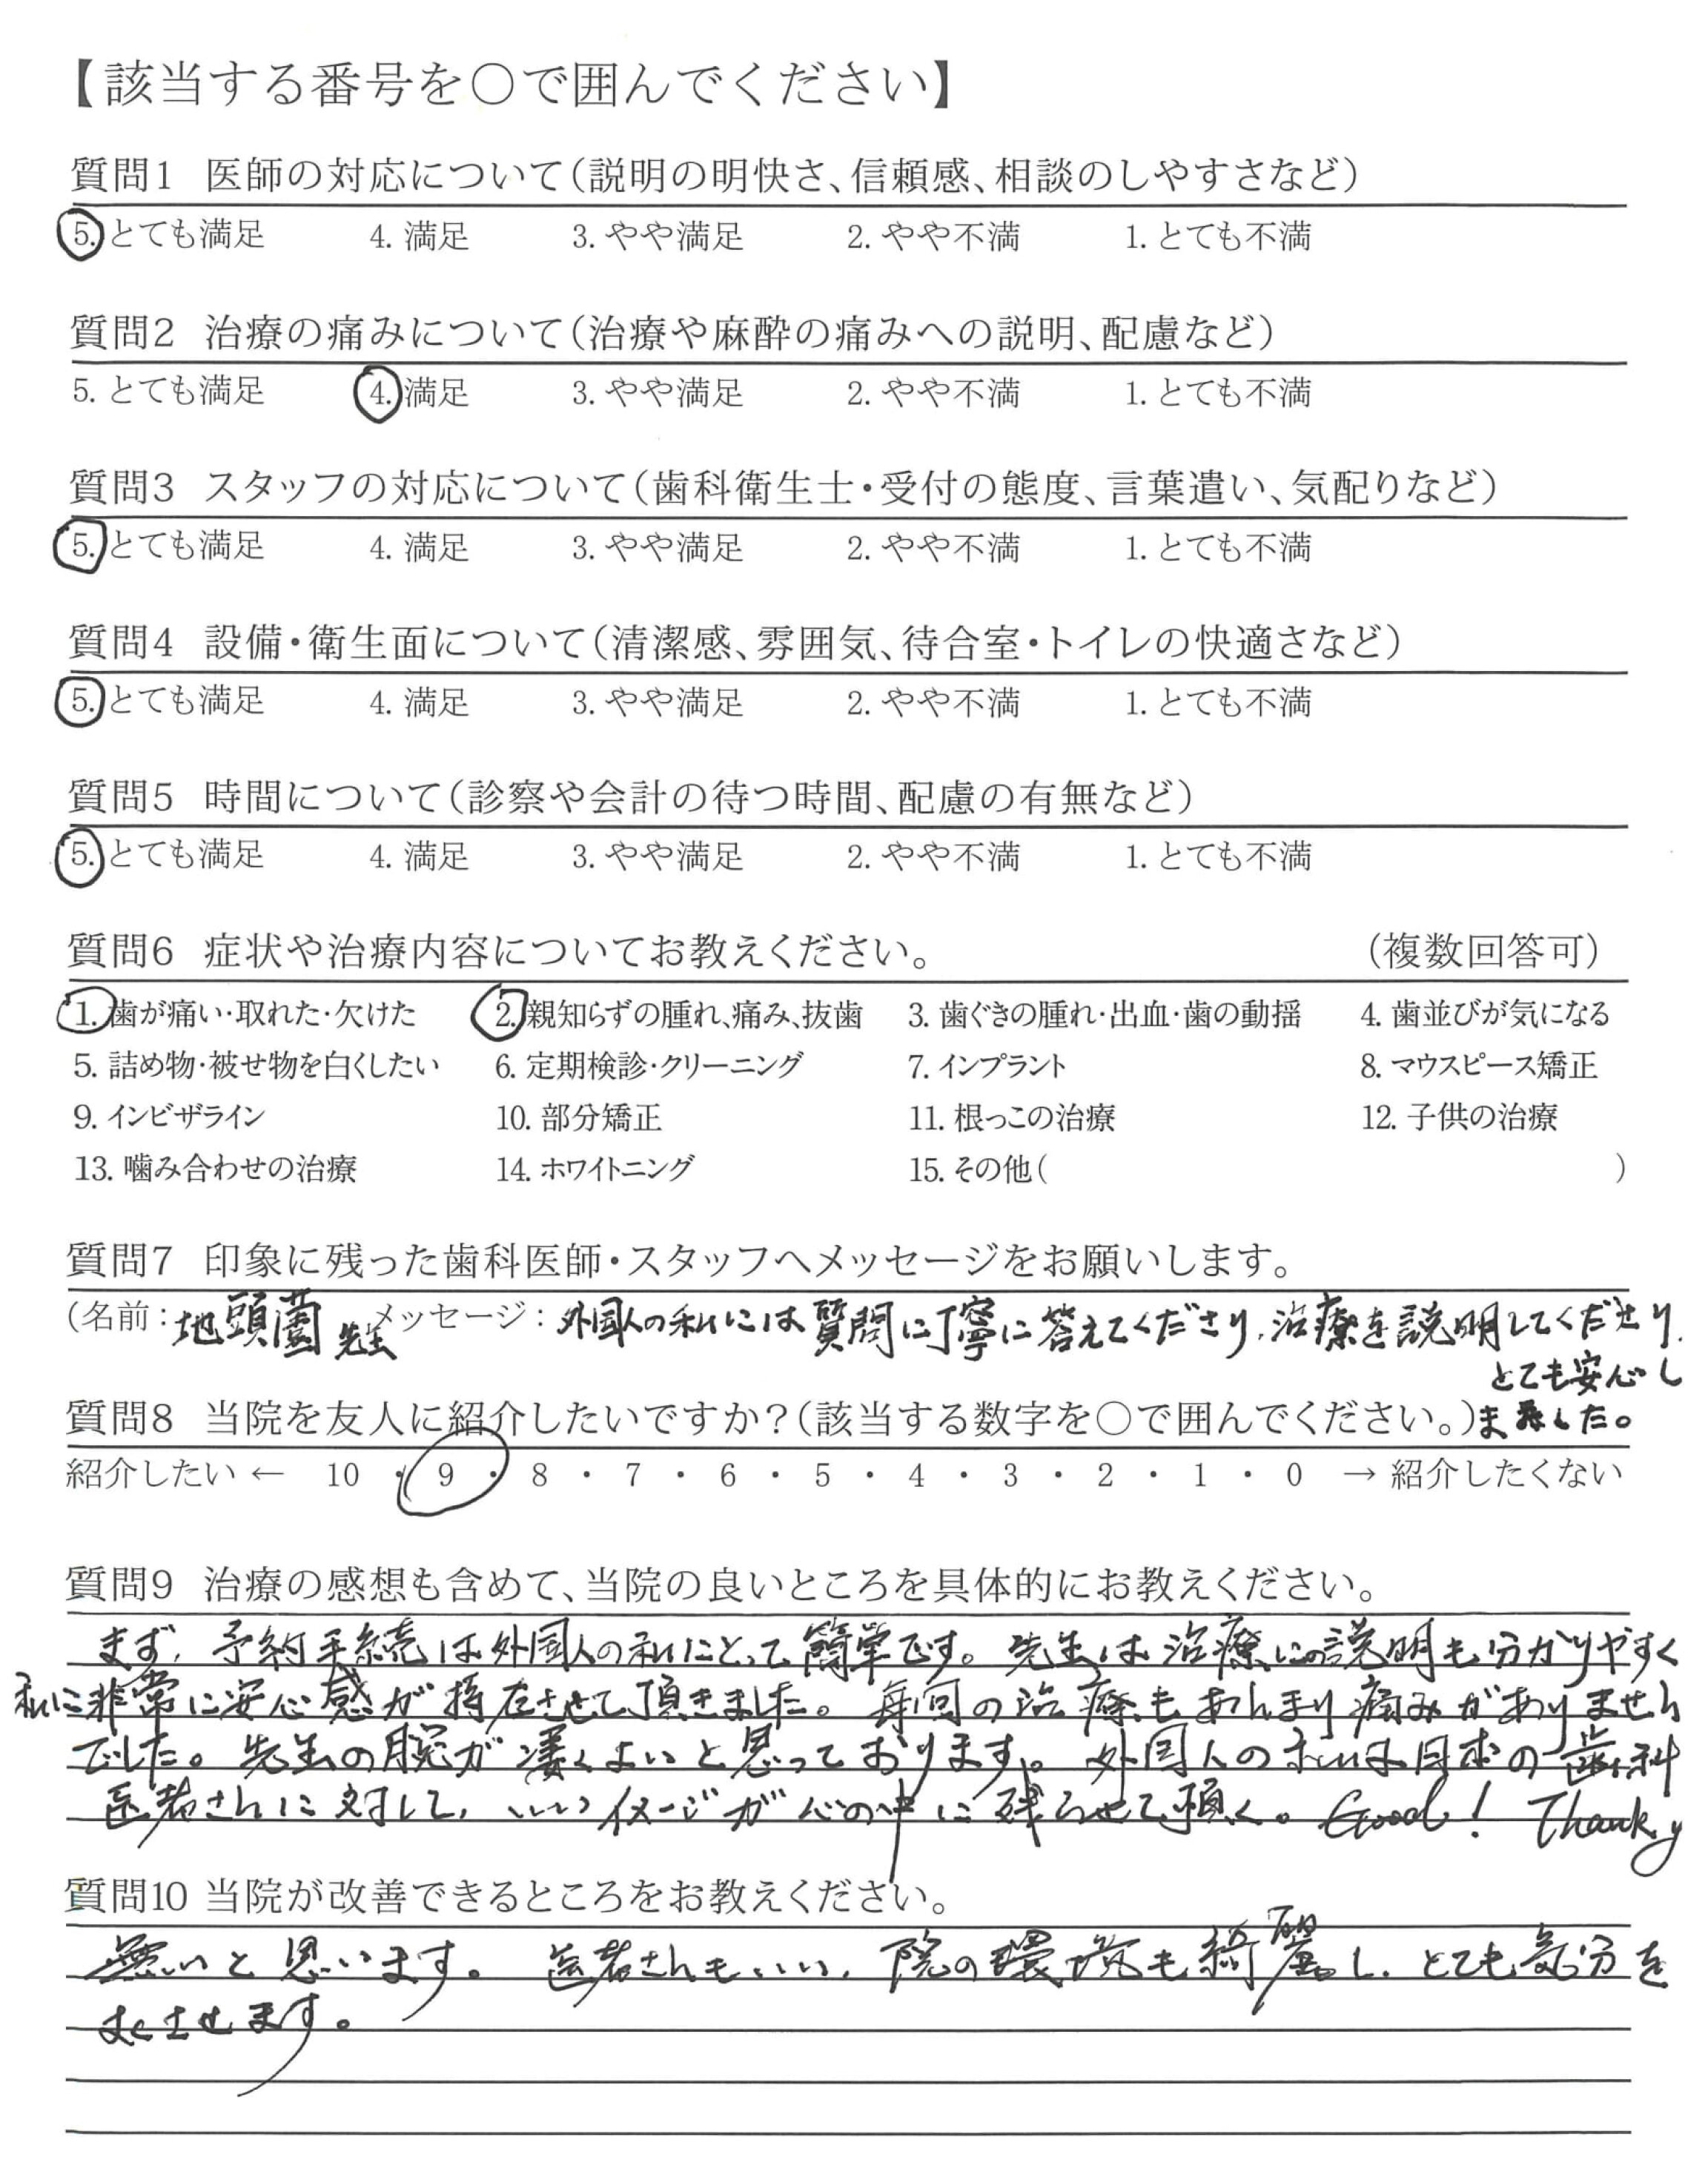 【該当する番号を〇で囲んでください】
質問1 医師の対応について（説明の明快さ、信頼感、相談のしやすさなど）
5. とても満足 4. 満足 3. やや満足 2. やや不満 1. とても不満
質問2 治療の痛みについて（治療や麻酔の痛みへの説明、配慮など）
5. とても満足 4. 満足 3. やや満足 2. やや不満 1. とても不満
質問3 スタッフの対応について（歯科衛生士・受付の態度、言葉遣い、気配りなど）
5. とても満足 4. 満足 3. やや満足 2. やや不満 1. とても不満
質問4 設備・衛生面について（清潔感、雰囲気、待合室・トイレの快適さなど）
5. とても満足 4. 満足 3. やや満足 2. やや不満 1. とても不満
質問5 時間について（診察や会計の待つ時間、配慮の有無など）
5. とても満足 4. 満足 3. やや満足 2. やや不満 1. とても不満
質問6 症状や治療内容についてお教えください。 （複数回答可）
1. 歯が痛い・取れた・欠けた 2. 親知らずの腫れ、痛み、抜歯 3. 歯ぐきの腫れ・出血・歯の動揺 4. 歯並びが気になる
5. 詰め物・被せ物を白くしたい 6. 定期検診・クリーニング 7. インプラント 8. マウスピース矯正
9. インビザライン 10. 部分矯正 11. 根っこの治療 12. 子供の治療
13. 噛み合わせの治療 14. ホワイトニング 15. その他（ ）
質問7 印象に残った歯科医師・スタッフへメッセージをお願いします。
（名前：地頭薗 先生 メッセージ：外国人の私には質問に丁寧に答えてくださり、治療を説明してくださり、
とても安心し
ました。
質問8 当院を友人に紹介したいですか？（該当する数字を〇で囲んでください。）
紹介したい ← 10 ・ 9 ・ 8 ・ 7 ・ 6 ・ 5 ・ 4 ・ 3 ・ 2 ・ 1 ・ 0 → 紹介したくない
質問9 治療の感想も含めて、当院の良いところを具体的にお教えください。
まず、予約手続は外国人の私にとって簡単です。先生は治療の説明も分かりやすく
私に非常に安心感が持たさせて頂きました。毎回の治療もあんまり痛みがありません
でした。先生の腕が凄くよいと思っております。外国人の私は日本の歯科
医者さんに対して、いいイメージが心の中に残らせて頂く。Good! Thank y
質問10 当院が改善できるところをお教えください。
無いと思います。医者さんもいい、院の環境も綺麗し、とても気分を
させます。